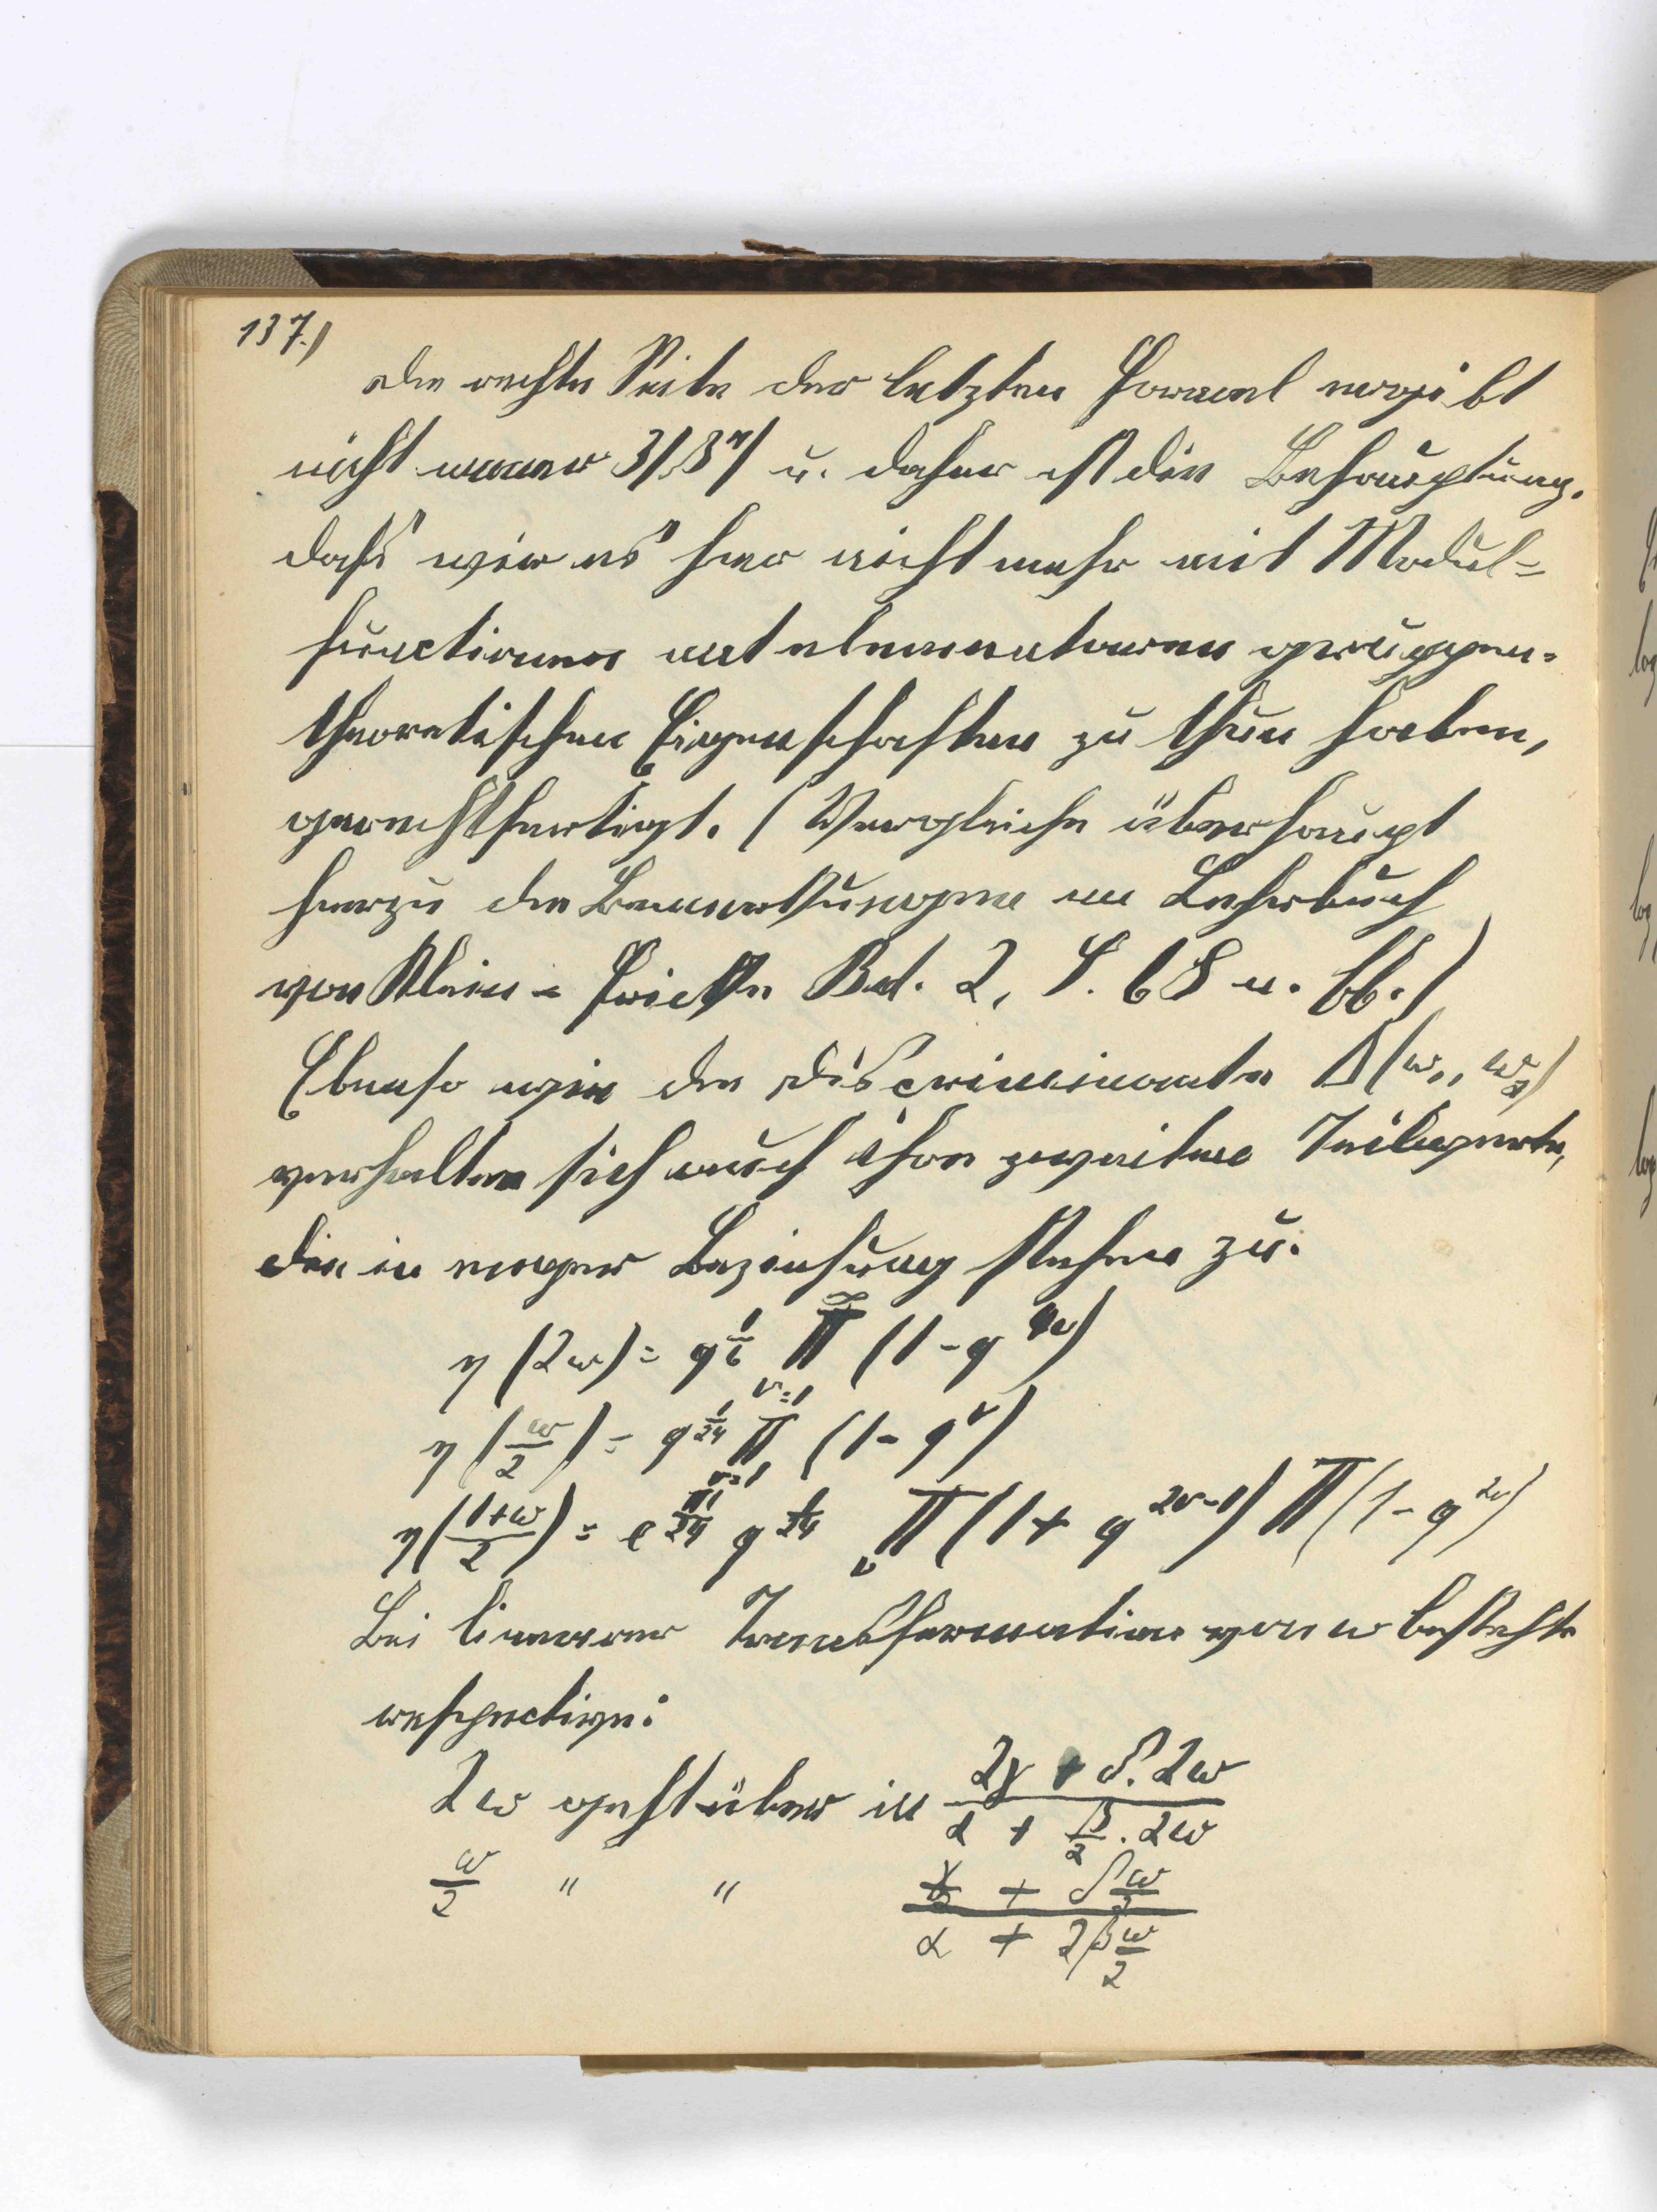 137.)
die rechte Seite der letzten Formel ergibt
nicht immer 3/8 u. daher ist die Behauptung,
daß wir es hier nicht mehr mit Modul=
functionen mit elementaren gruppen-
theoretischen Eigenschaften zu thun haben,
gerechtfertigt. (Vergleiche überhaupt
hierzu die Bemerkungen im Lehrbuch
von Klein - Fricke Bd. 2, S. 68 u. ff.)
Ebenso wie die Discriminante Δ(ω₁, ω₂)
verhalten sich auch ihre zweiten Teilwerte,
die in enger Beziehung stehen zu:
η (2ω) = q^{1/6} ∏_{ν=1}^{∞} (1 - q^{4ν})
η (ω/2) = q^{1/24} ∏_{ν=1} (1 - q^ν)
η((1+ω)/2) = e^{πi/24} q^{1/24} ∏_ν (1 + q^{2ν-1}) ∏ (1 - q^{2ν})
Bei linearer Transformation von ω besteht
respective:
2ω geht über in (2γ + δ. 2ω)/(α + β/2 . 2ω)
ω/2 " " (γ/2 + δ ω/2)/(α + 2β ω/2)